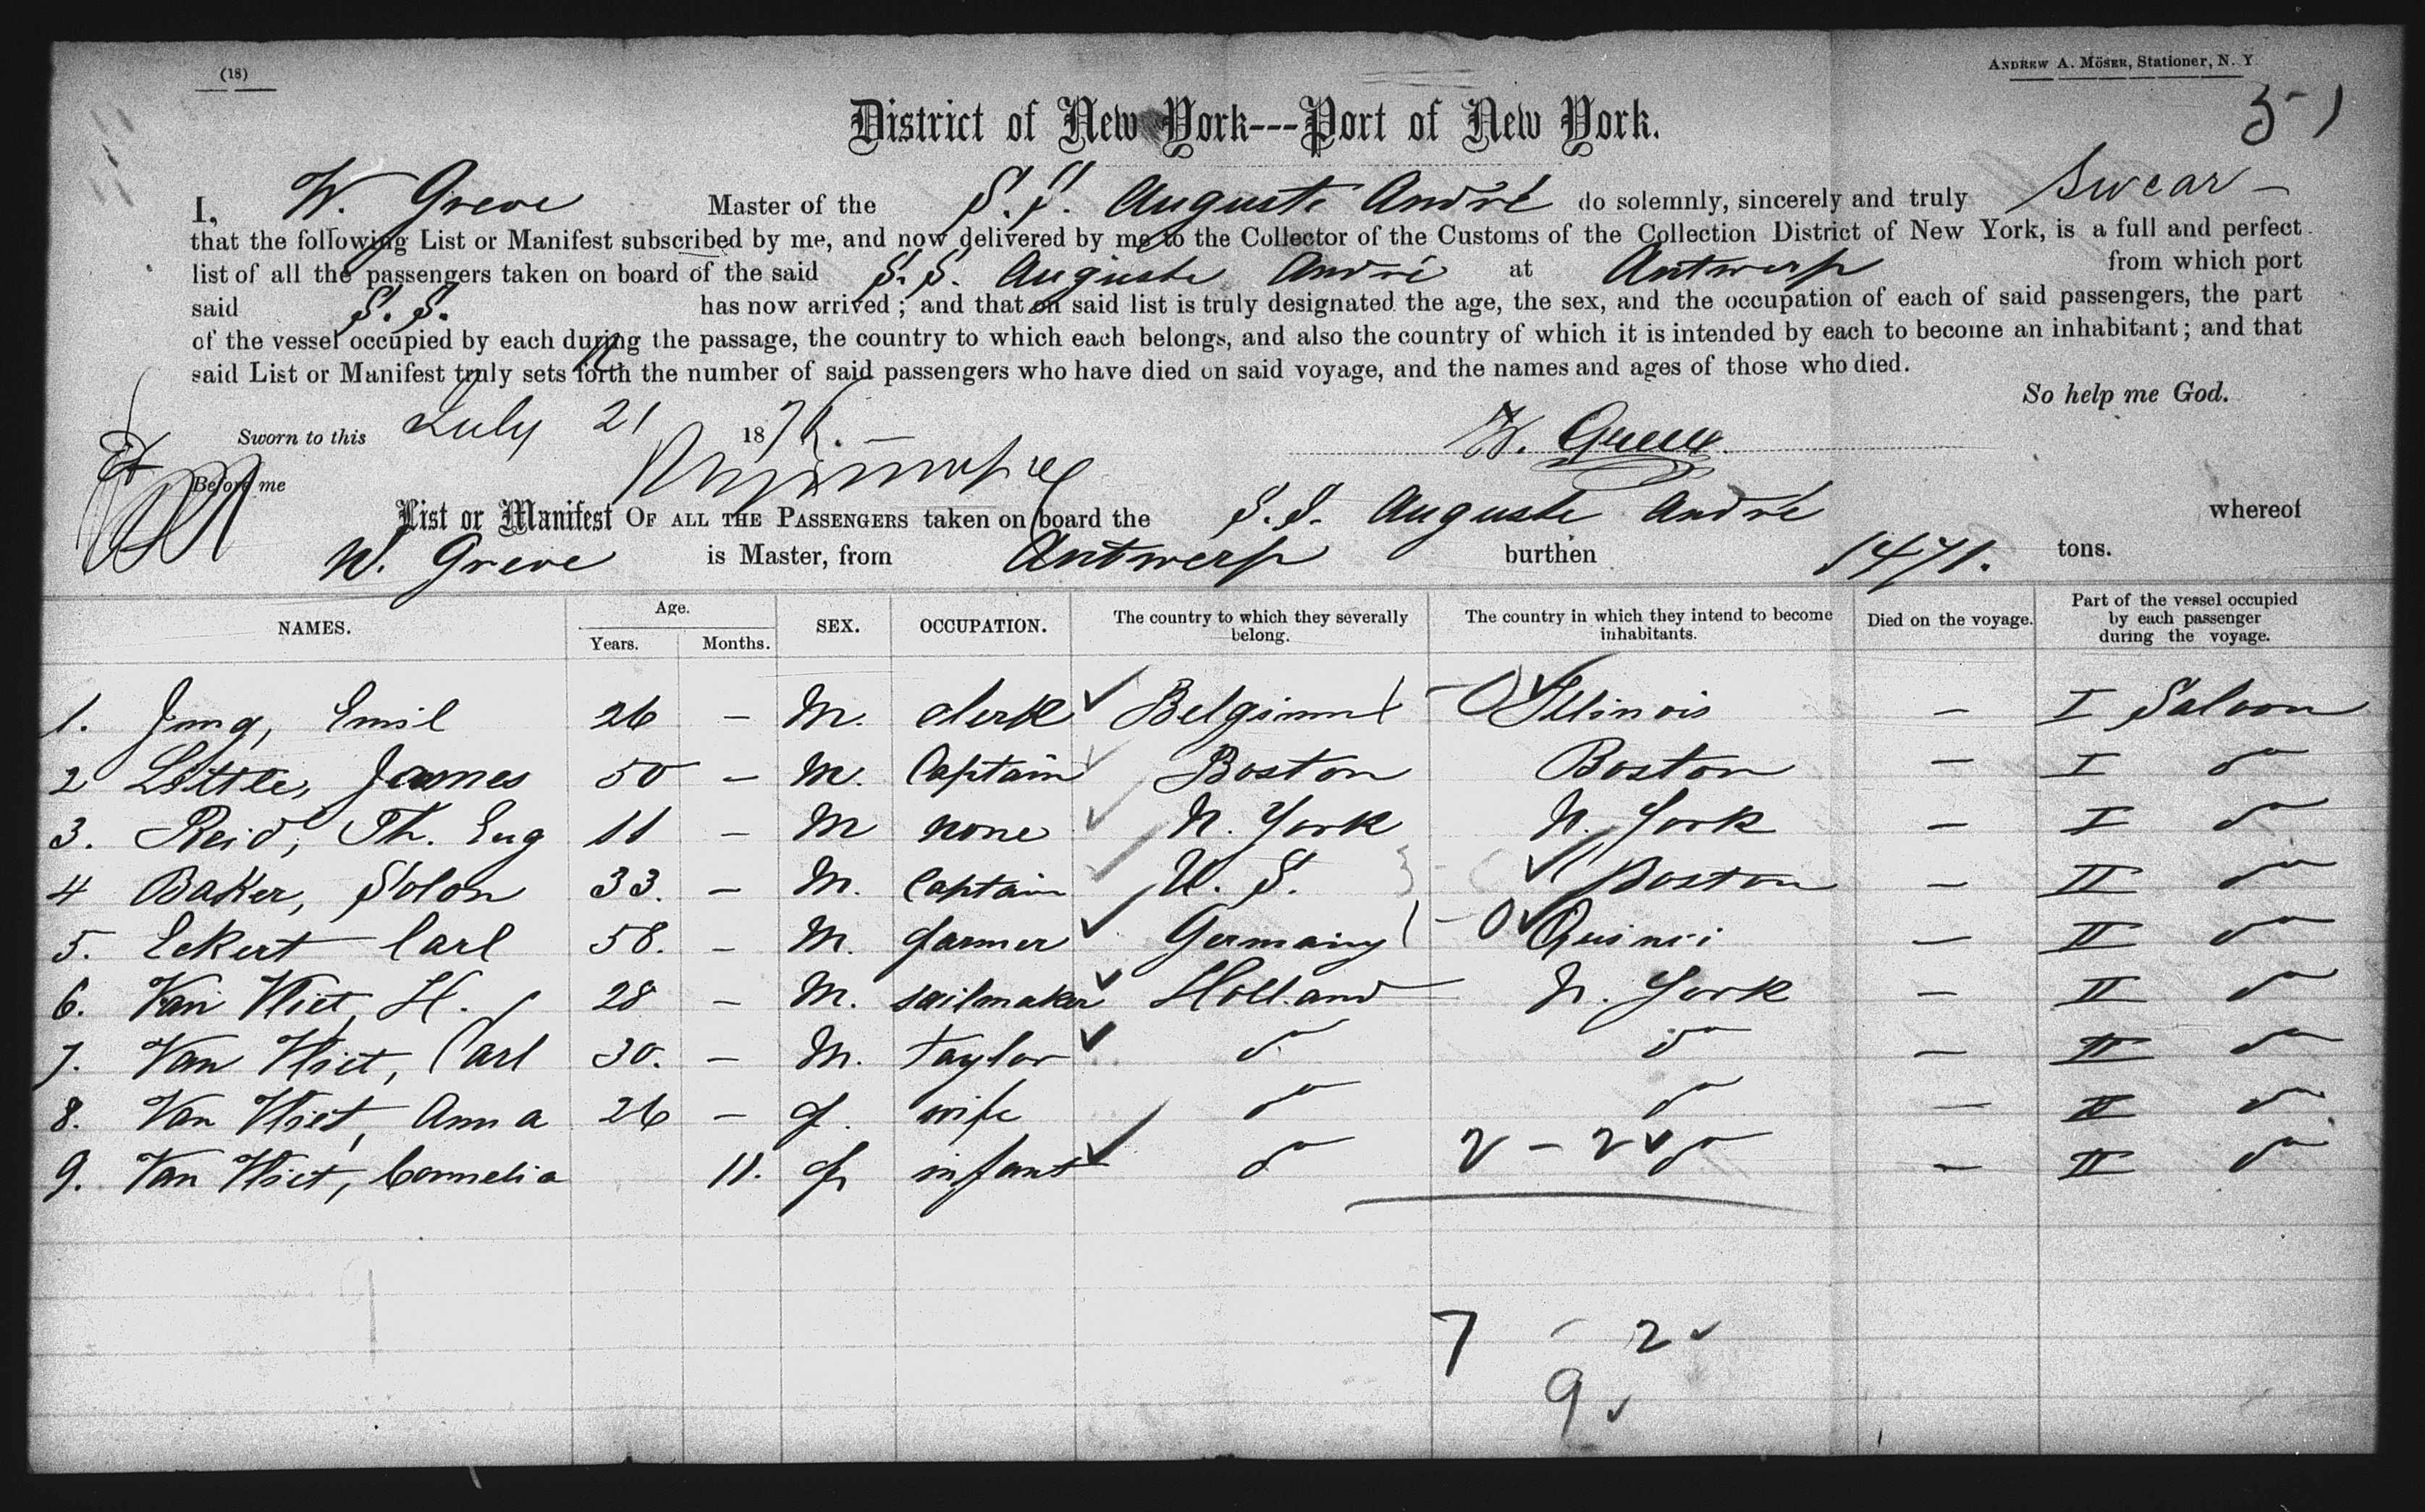 (18)
ANDREW A. MÖSER, Stationer, N. Y
51
District of New York---Port of New York.
I, W. Greve Master of the S.S. Auguste André do solemnly, sincerely and truly swear —
that the following List or Manifest subscribed by me, and now delivered by me to the Collector of the Customs of the Collection District of New York, is a full and perfect
list of all the passengers taken on board of the said S.S. Auguste André at Antwerp from which port
said S.S. has now arrived; and that on said list is truly designated the age, the sex, and the occupation of each of said passengers, the part
of the vessel occupied by each during the passage, the country to which each belongs, and also the country of which it is intended by each to become an inhabitant; and that
said List or Manifest truly sets forth the number of said passengers who have died on said voyage, and the names and ages of those who died.
So help me God.
Sworn to this July 21 187
W. Greve
Before me
List or Manifest OF ALL THE PASSENGERS taken on board the S.S. Auguste André whereof
W. Greve is Master, from Antwerp burthen 1471. tons.
NAMES. Age. Years. Months. SEX. OCCUPATION. The country to which they severally belong. The country in which they intend to become inhabitants. Died on the voyage. Part of the vessel occupied by each passenger during the voyage.
1. Jung, Emil 26 — M. clerk Belgium — 0 Illinois — I Saloon
2 Little, James 50 — M. Captain Boston Boston — I do
3. Reid, Th. Eug 11 — M none N. York N. York — I do
4 Baker, Solon 33. — M. Captain U. S. Boston — II do
5. Eckert Carl 58. — M. farmer Germany — 0 Quinci — II do
6. Van Vliet, H. 28 — M. sailmaker Holland N. York — II do
7. Van Vliet, Carl 30. — M. Taylor do do — II do
8. Van Vliet, Anna 26 — f. wife do do — II do
9. Van Vliet, Cornelia 11. f. infant do 2 - 2 do — II do
7 - 2
9